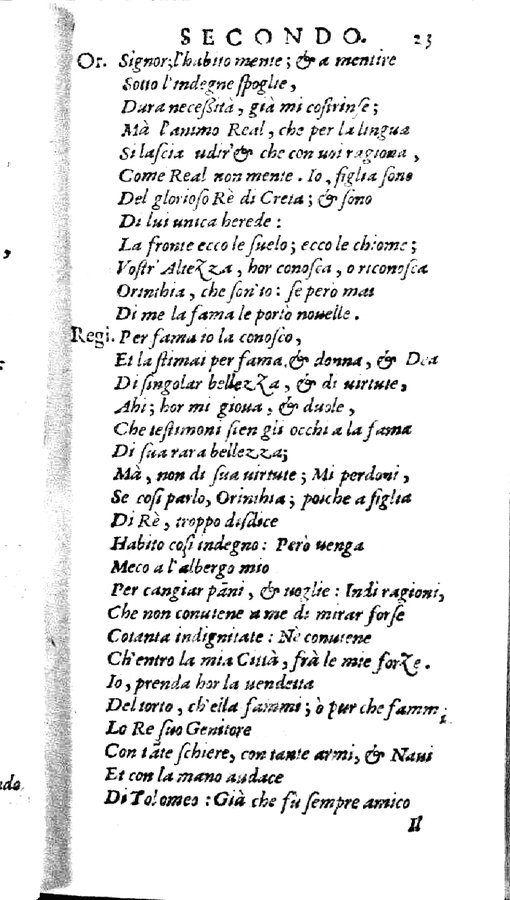 SECONDO. 23
Or. Signor, l'habito mente; & a mentire
Sotto l'indegne ſpoglie,
Dura neceſſità, già mi coſtrinſe;
Mà l'animo Real, che per la lingua
Si laſcia udir & che con uoi ragiona,
Come Real non mente. Io, figlia ſono
Del glorioſo Rè di Creta; & ſono
Di lui unica herede:
La fronte ecco le ſuelo; ecco le chiome;
Voſtr'Altezza, hor conoſca, o riconoſca
Orinthia, che ſon'io: ſe però mai
Di me la fama le portò nouelle.
Regi. Per fama io la conoſco,
Et la ſtimai per fama, & donna, & Dea
Di ſingolar bellezza, & di uirtute,
Ahi; hor mi gioua, & duole,
Che teſtimoni ſien gli occhi a la fama
Di ſua rara bellezza;
Mà, non di ſua uirtute; Mi perdoni,
Se coſi parlo, Orinthia; poiche a figlia
Di Rè, troppo diſdice
Habito coſi indegno: Però uenga
Meco a l'albergo mio
Per cangiar pāni, & uoglie: Indi ragioni,
Che non conuiene a me di mirar forſe
Cotanta indignitate: Nè conuiene
Ch'entro la mia Città, frà le mie forze.
Io, prenda hor la uendetta
Del torto, ch'ella fammi; ò pur che fammi
Lo Re ſuo Genitore
Con tāte ſchiere, con tante armi, & Naui
Et con la mano audace
Di Tolomeo: Già che fù ſempre amico
Il